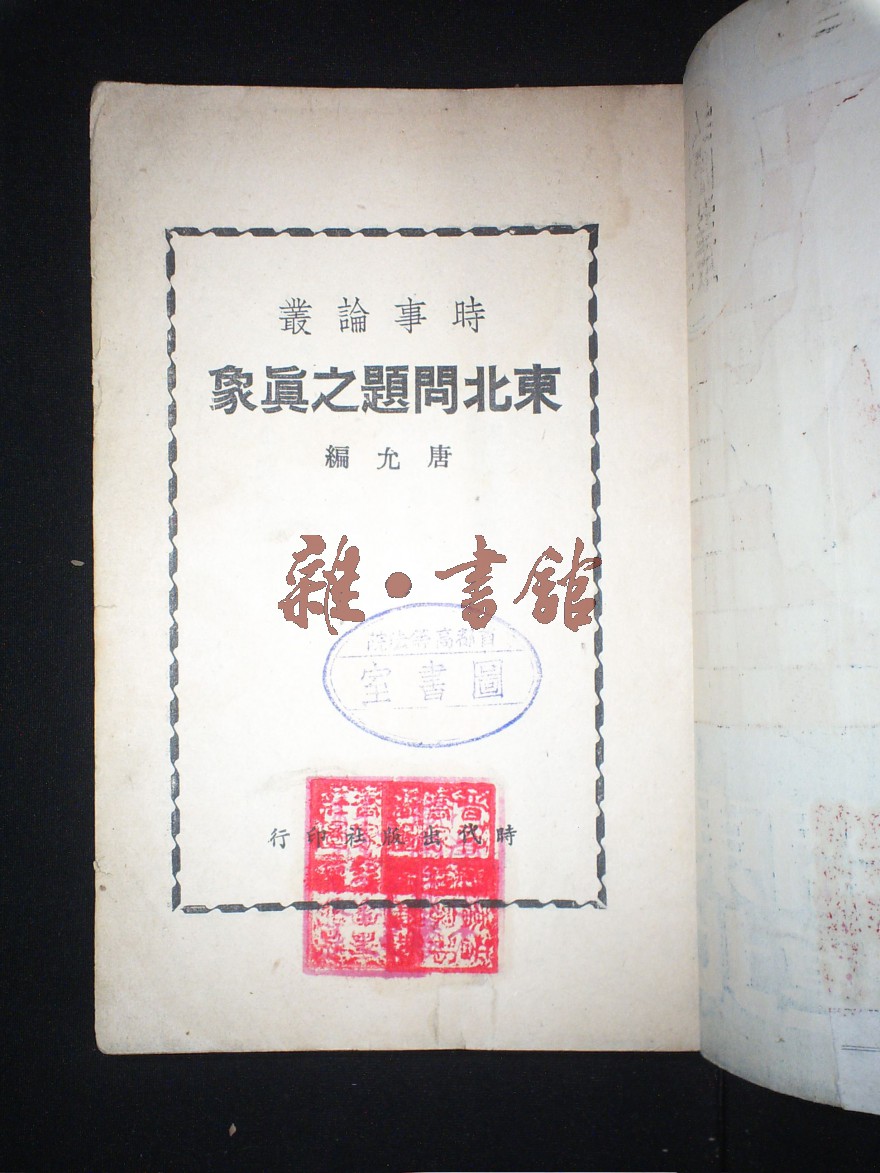 時事論叢
東北問題之眞象
唐允編
雜•書館
首都高等法院
圖書室
時代出版社印行